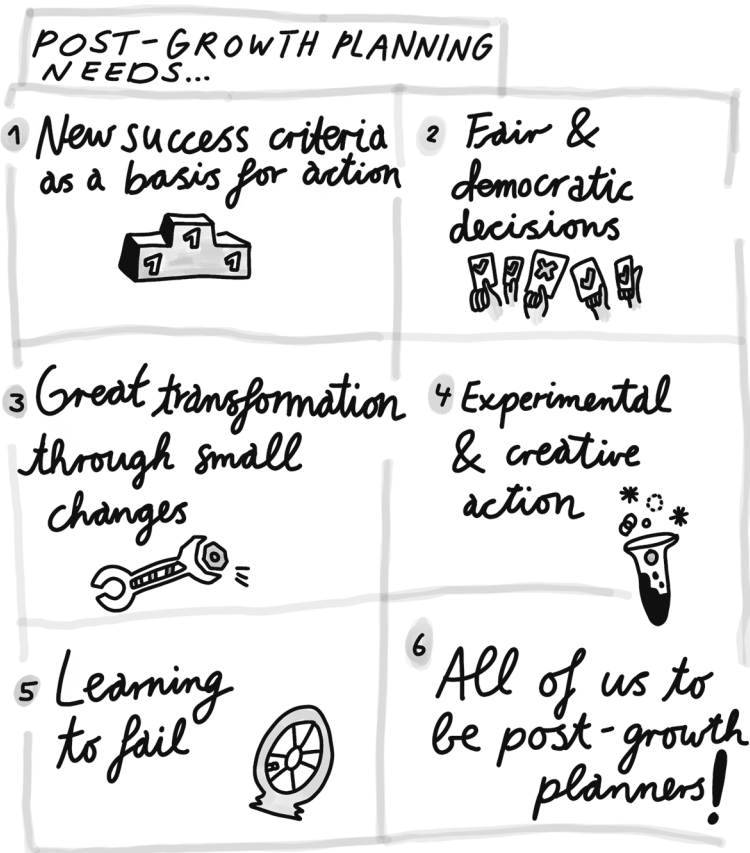 POST-GROWTH PLANNING
NEEDS...
1 New success criteria
as a basis for action
1
1
1
2 Fair &
democratic
decisions
3 Great transformation
through small
changes
4 Experimental
& creative
action
5 Learning
to fail
6 All of us to
be post-growth
planners!